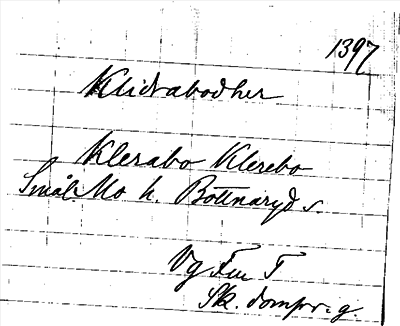 1397
Klidrabodher
Klerabo Klerebo
Smål. Mo h. Bottnaryd s.
Vg Fru T
Sk. dompr. g.